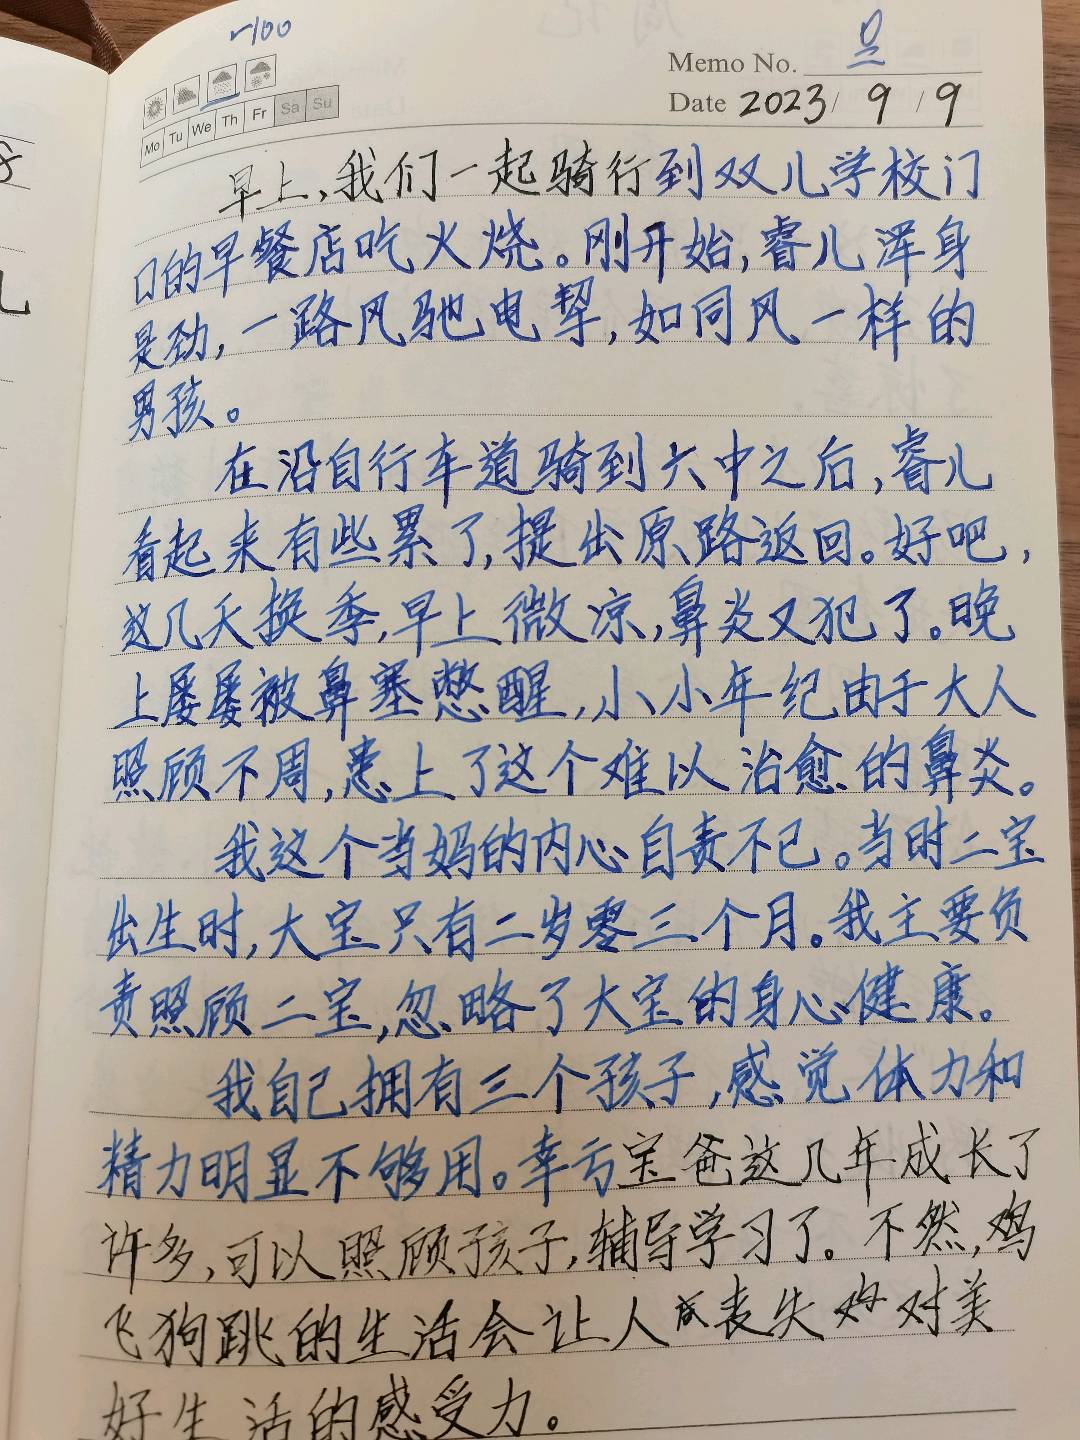 r100
Memo No. 旦
Date 2023/9/9
Mo Tu We Th Fr Sa Su
早上,我们一起骑行到双儿学校门
口的早餐店吃火烧。刚开始,睿儿浑身
是劲,一路风驰电掣,如同风一样的
男孩。
在沿自行车道骑到六中之后,睿儿
看起来有些累了,提出原路返回。好吧,
这几天换季,早上微凉,鼻炎又犯了。晚
上屡屡被鼻塞憋醒,小小年纪由于大人
照顾不周,患上了这个难以治愈的鼻炎。
我这个当妈的内心自责不已。当时二宝
出生时,大宝只有二岁零三个月。我主要负
责照顾二宝,忽略了大宝的身心健康。
我自己拥有三个孩子,感觉体力和
精力明显不够用。幸亏宝爸这几年成长了
许多,可以照顾孩子,辅导学习了。不然,鸡
飞狗跳的生活会让人丧失对美
好生活的感受力。